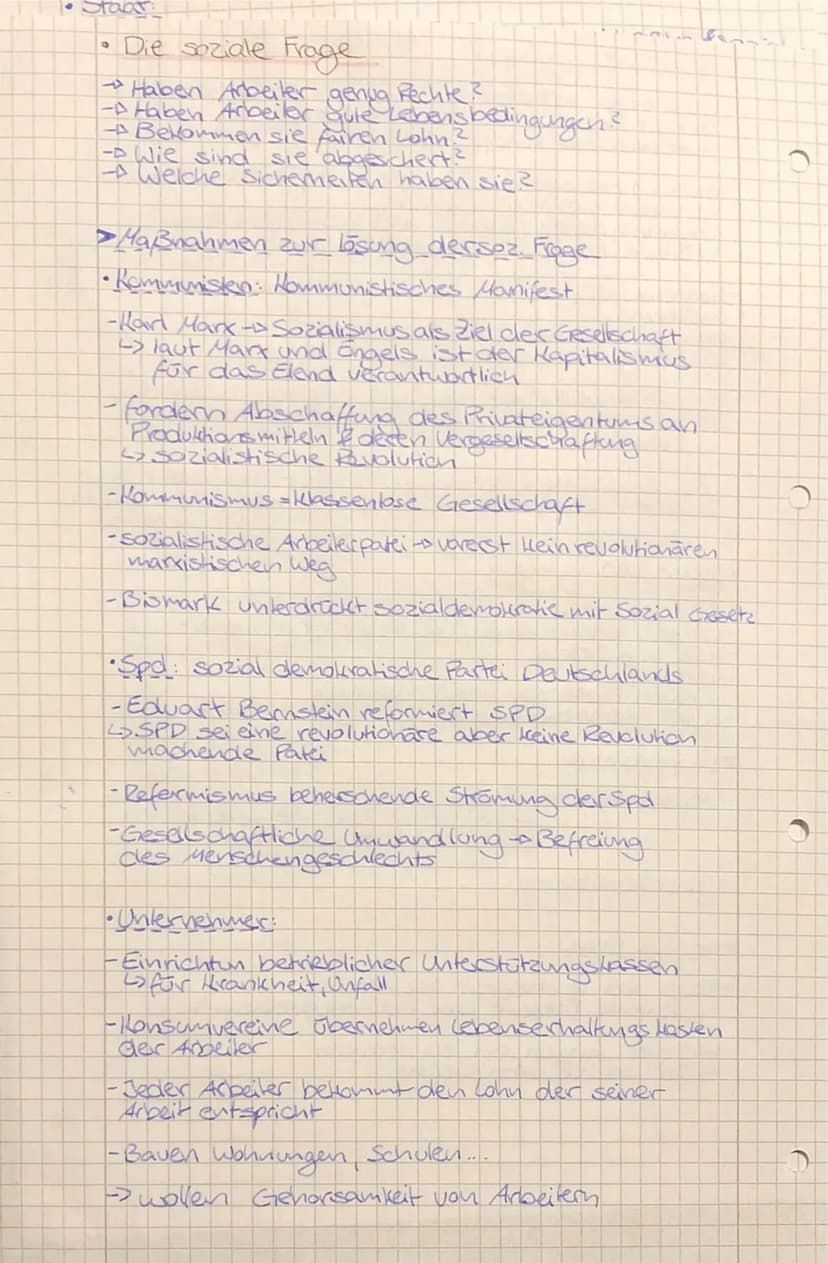 • Staat:
• Die soziale Frage
→ Haben Arbeiter genug Rechte?
→ Haben Arbeiter gute Lebensbedingungen?
→ Bekommen sie fairen Lohn?
→ Wie sind sie abgeschert?
→ Welche Sicherheiten haben sie?
➤ Maßnahmen zur lösung der soz. Frage
• Kommunisten: Kommunistisches Manifest
- Karl Marx → Sozialismus als Ziel der Gesellschaft
↳ laut Marx und Engels ist der Kapitalismus
für das Elend verantwortlich
- fordern Abschaffung des Privateigentums an
Produktionsmitteln & deren Vergesellschaftung
↳ sozialistische Revolution
- Kommunismus = klassenlose Gesellschaft
- sozialistische Arbeiterpatei → vorerst kein revolutionären
marxistischen Weg
- Bismark unterdrückt sozialdemokratie mit Sozial Gesetz
• Spd: sozial demokratische Partei Deutschlands
- Eduart Bernstein reformiert SPD
↳ SPD sei eine revolutionäre aber keine Revolution
machende Patei
- Reformismus beherschende Strömung der Spd
- Gesellschaftliche Umwandlung → Befreiung
des Menschengeschlechts
• Unternehmer:
- Einrichtun betrieblicher Unterstützungskassen
↳ für Krankheit, Unfall
- Konsumvereine übernehmen Lebenserhaltungskosten
der Arbeiter
- Jeder Arbeiter bekommt den Lohn der seiner
Arbeit entspricht
- Bauen Wohnungen, Schulen...
→ wollen Gehorsamkeit von Arbeitern